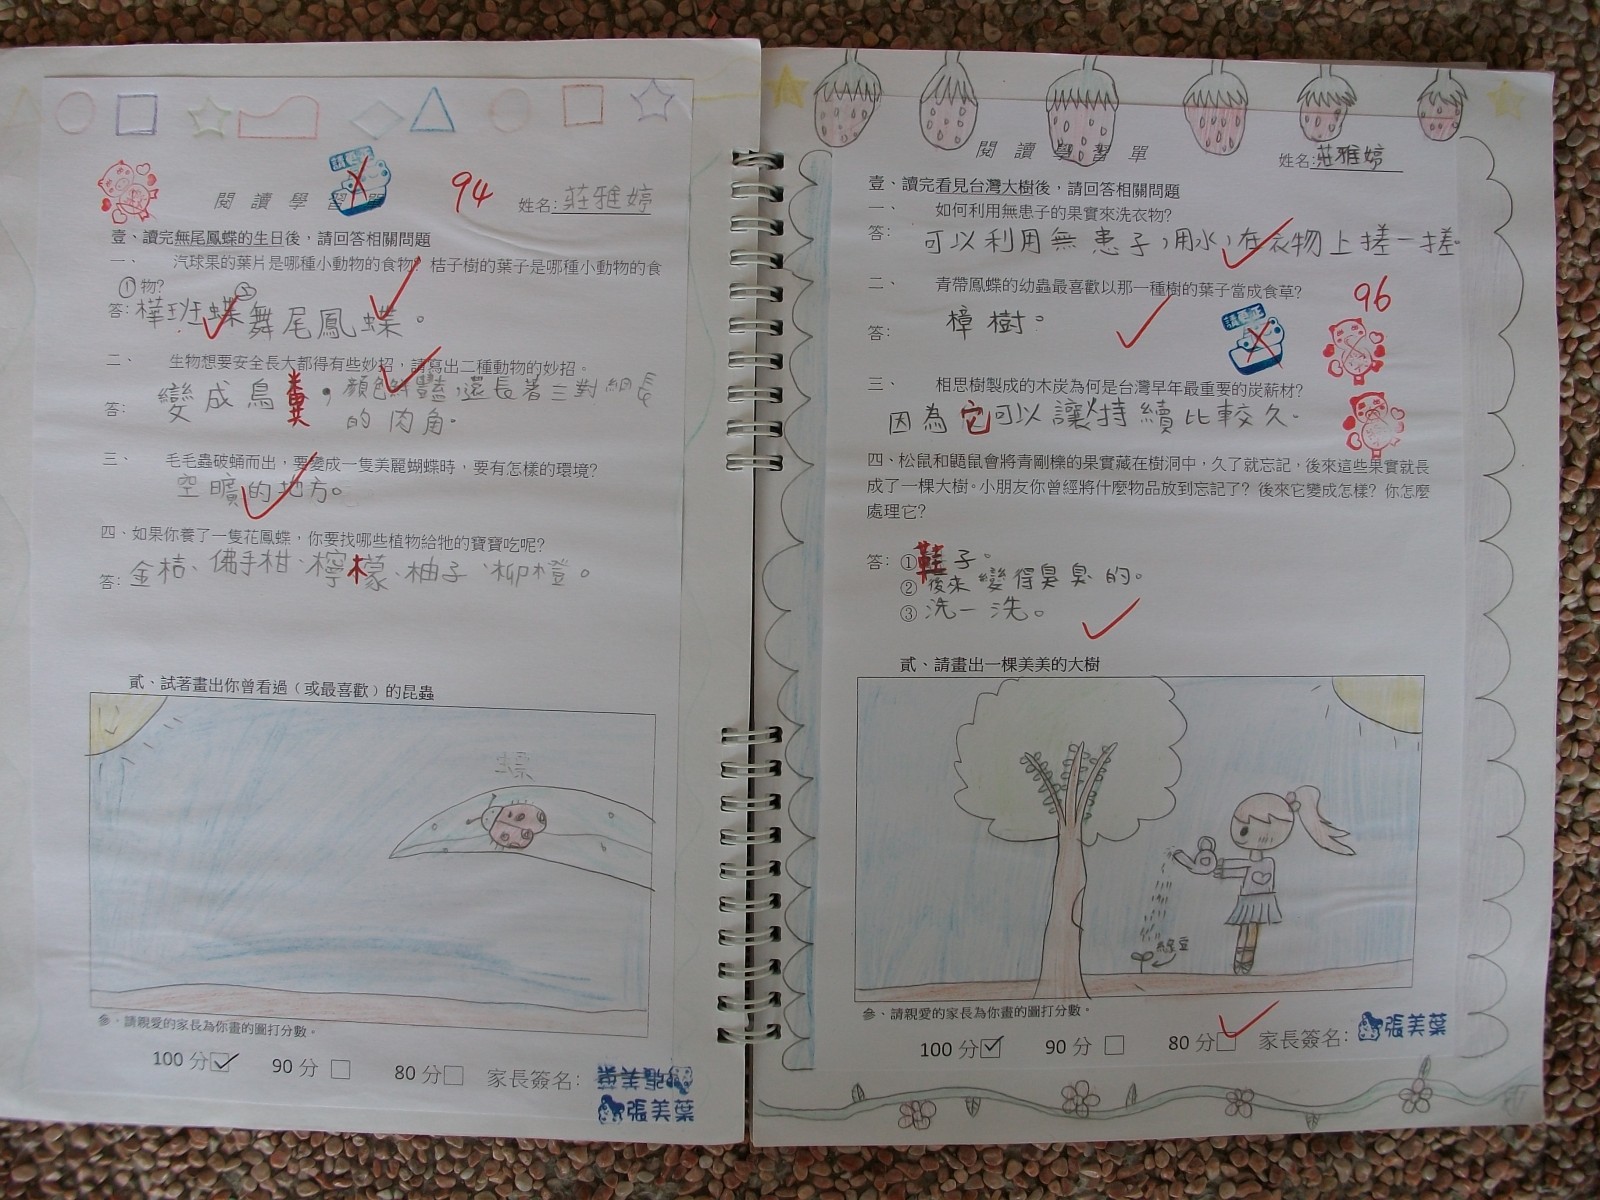 閱讀學習單
94
姓名:莊雅婷
壹、讀完無尾鳳蝶的生日後，請回答相關問題
一、 汽球果的葉片是哪種小動物的食物？桔子樹的葉子是哪種小動物的食
物？
答: ①樺班蝶②舞尾鳳蝶。
二、 生物想要安全長大都得有些妙招，請寫出二種動物的妙招。
答: 變成鳥糞，顏色鮮豔，還長著三對細長
的肉角。
三、 毛毛蟲破蛹而出，要變成一隻美麗蝴蝶時，要有怎樣的環境？
空曠的地方。
四、如果你養了一隻花鳳蝶，你要找哪些植物給牠的寶寶吃呢？
答: 金桔、佛手柑、檸檬、柚子、柳橙。
貳、試著畫出你曾看過（或最喜歡）的昆蟲
參、請親愛的家長為你畫的圖打分數。
100 分 90 分 80 分 家長簽名:
張美葉
張美葉
閱讀學習單
姓名:莊雅婷
壹、讀完看見台灣大樹後，請回答相關問題
一、 如何利用無患子的果實來洗衣物？
答: 可以利用無患子，用水，在衣物上搓一搓。
二、 青帶鳳蝶的幼蟲最喜歡以那一種樹的葉子當成食草？
96
答: 樟樹。
三、 相思樹製成的木炭為何是台灣早年最重要的炭薪材？
因為它可以讓火持續比較久。
四、松鼠和鼯鼠會將青剛櫟的果實藏在樹洞中，久了就忘記，後來這些果實就長
成了一棵大樹。小朋友你曾經將什麼物品放到忘記了？後來它變成怎樣？你怎麼
處理它？
答: ①鞋子。
②後來變得臭臭的。
③洗一洗。
貳、請畫出一棵美美的大樹
綠豆
參、請親愛的家長為你畫的圖打分數。
100 分 90 分 80 分 家長簽名:
張美葉